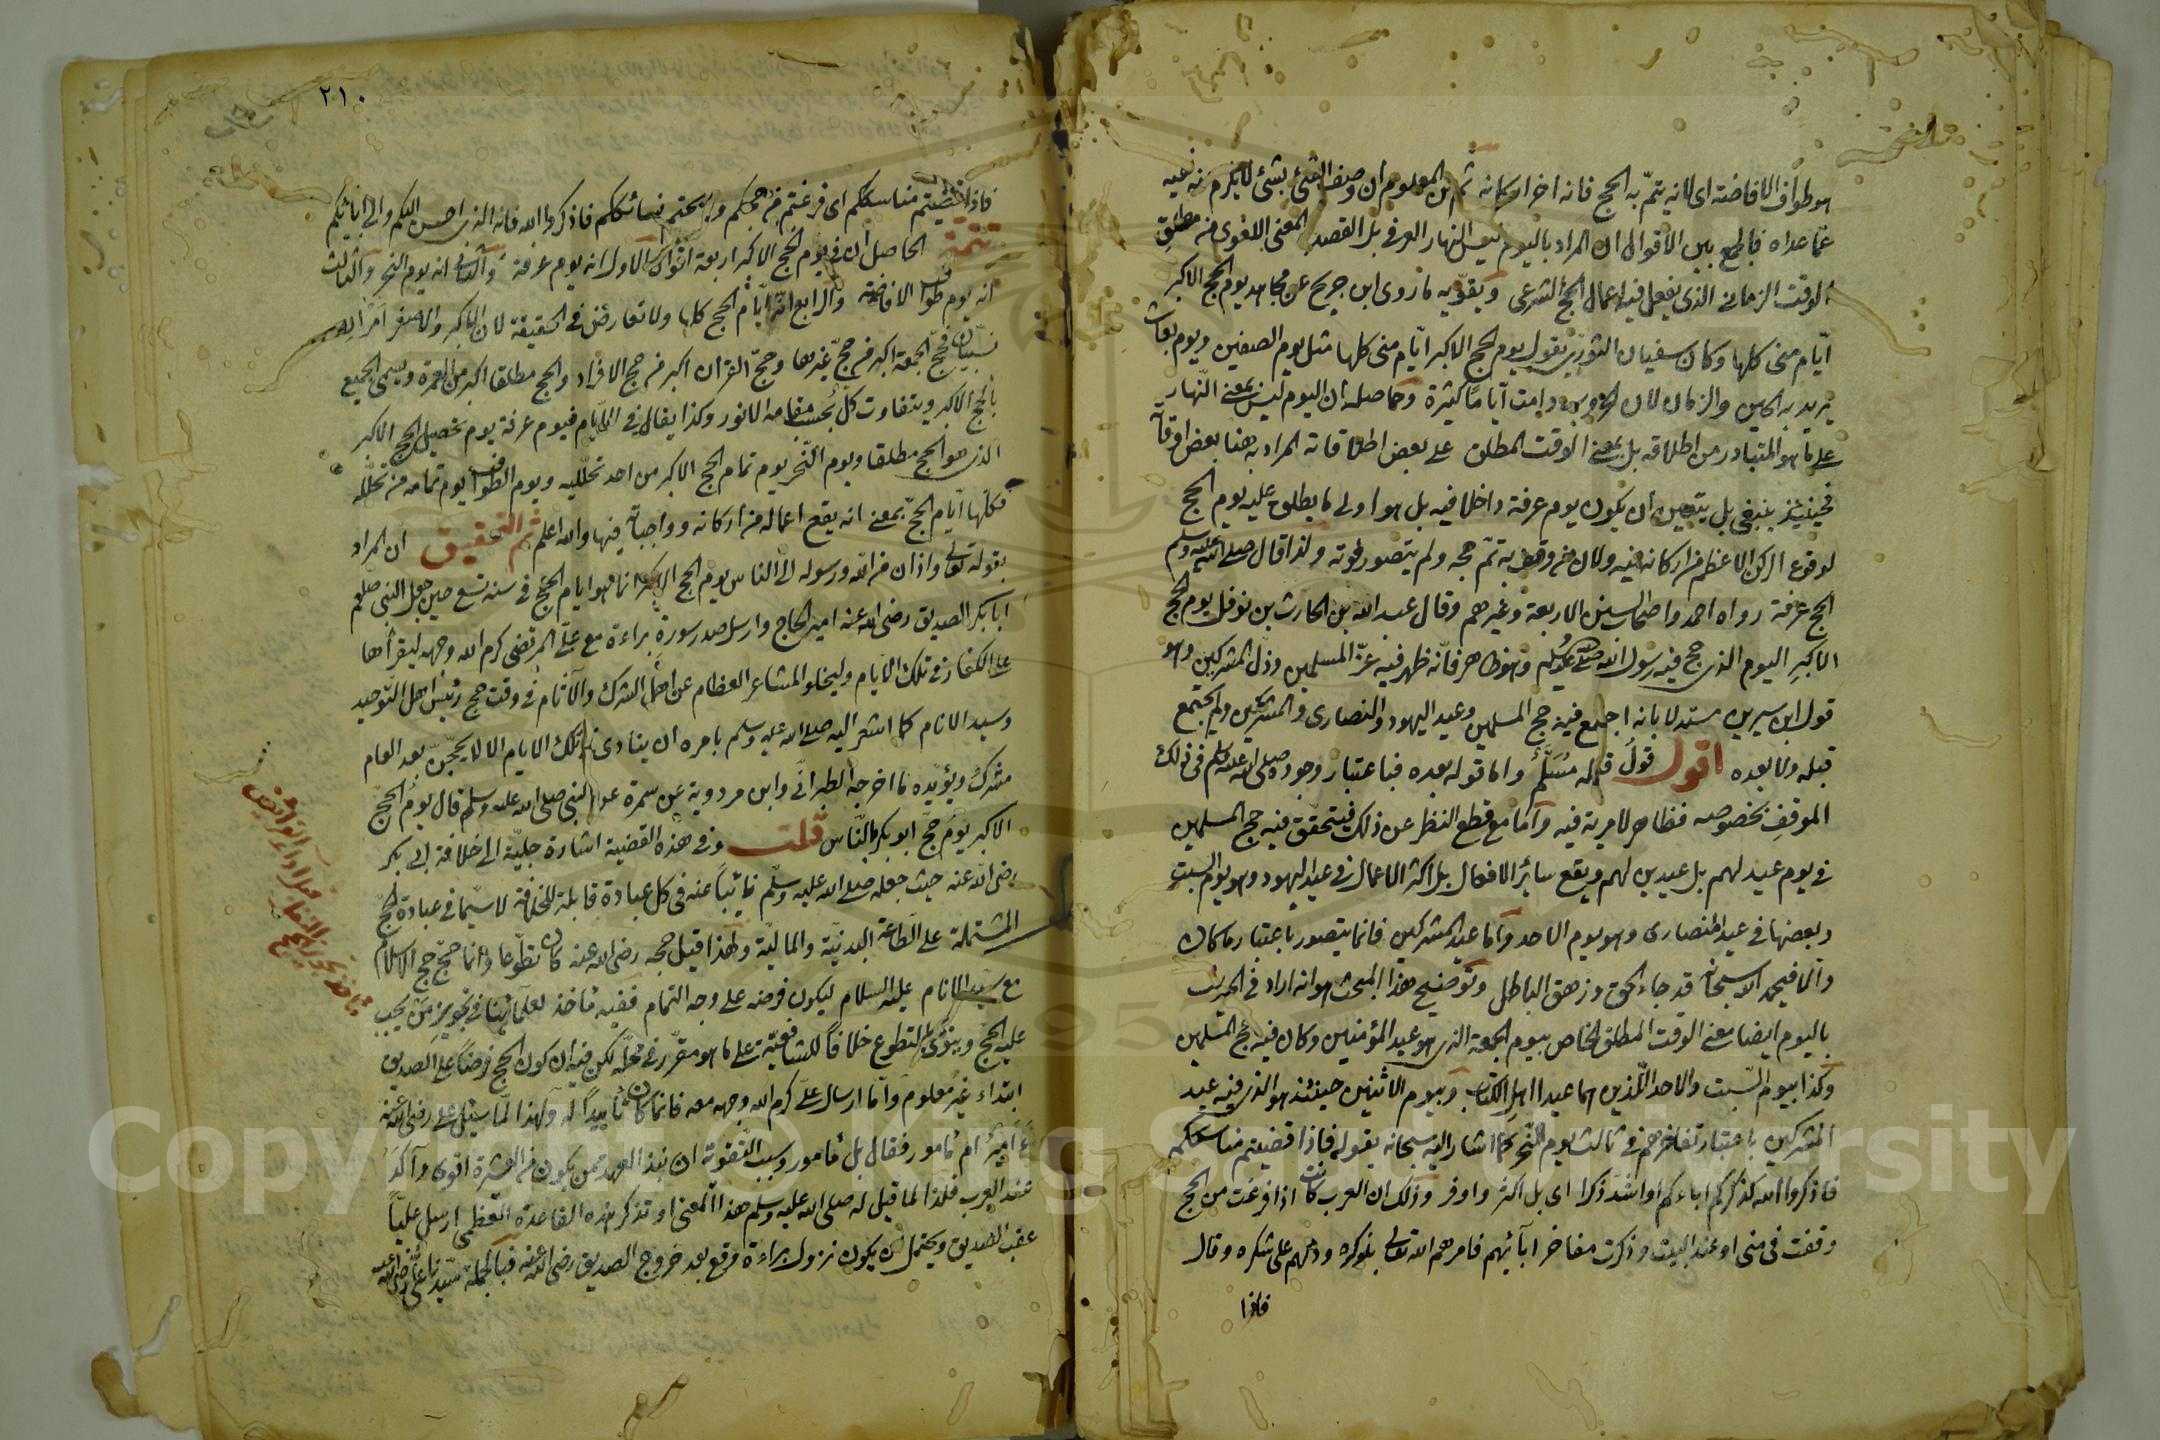 هو طواف الافاضة اى لانه يتمّ به الحج فانه اخر اركانه ثم من المعلوم ان وصف الشئ بشئ لا يلزم منه نفيه
عمّا عداه فالجمع بين الأقوال ان المراد باليوم ليس النهار العرفى بل القصد المعنى اللغوى من مطلق
الوقت الزمانى الذى يفعل فيه اعمال الحج الشرعى ويقوّيه ما روى ابن جريج عن مجاهد يوم الحج الاكبر
ايّام منى كلها وكان سفيان الثورى يقول يوم الحج الاكبر ايّام منى كلها مثل يوم الصفين ويوم بعاث
يريد به الحين والزمان لان الحروب دامت أيامًا كثيرة وحاصله ان اليوم ليس بمعنى النّهار
على ما هو المتبادر من اطلاقه بل بمعنى الوقت المطلق على بعض اطلاقاته المراد به هنا بعض اوقاته
فحينئذ ينبغى بل يتعين أن يكون يوم عرفة داخلا فيه بل هو اولى ما يطلق عليه يوم الحج
لوقوع الركن الاعظم من اركانه فيه ولان من وقف به تمّ حجه ولم يتصور فوته ولذا قال صلى الله عليه وسلم
الحج عرفة رواه احمد واصحاب السنن الاربعة وغيرهم وقال عبد الله بن الحارث بن نوفل يوم الحج
الاكبر اليوم الذى حج فيه رسول الله صلى الله عليه وسلم وهو ظاهر فانّه ظهر فيه عزّ المسلمين وذلّ المشركين وهو
قول ابن سيرين مستدلا بانه اجتمع فيه حج المسلمين وعيد اليهود والنصارى والمشركين ولم يجتمع
قبله ولا بعده اقول قولُ قبله مُسَلَّمٌ واما قوله بعده فباعتبار وجوده صلى الله عليه وسلم فى ذلك
الموقف بخصوصه فظاهر لا مرية فيه وأمّا مع قطع النظر عن ذلك فيتحقّق فيه حج المسلمين
فى يوم عيد لهم بل عيدين لهم ويقع سائر الافعال بل اكثر الاعمال فى عيد اليهود وهو يوم السبت
وبعضها فى عيد النصارى وهو يوم الاحد وأما عيد المشركين فانما يتصور باعتبار ما كان
والّا فبحمد الله سبحانه قد جاء الحق وزهق الباطل وتوضيح هذا المبحث هو انه اراد فى الحديث
باليوم ايضا معنى الوقت المطلق الخاص بيوم الجمعة الذى هو عيد المؤمنين وكان فيه حج المسلمين
وكذا بيوم السّبت والاحد اللّذين هما عيدا اهل الكتاب وبيوم الاثنين حينئذ هو الذى فيه عيد
المشركين باعتبار تفاخرهم فى ثالث يوم النحر كما اشار اليه سبحانه بقوله فاذا قضيتم مناسككم
فاذكروا الله كذكركم اباءكم او اشدّ ذكرا اى بل اكثر واوفر وذلك ان العرب كانت اذا فرغت من الحج
وقفت فى منى او عند البيت وذكرت مفاخر ابائهم فامرهم الله تعالى بذكره ودلهم على شكره وقال
فاذا
٢١٠
فاذا قضيتم مناسككم اى فرغتم من حجكم وذبحتم نسائككم فاذكروا الله فانه الذى احسن اليكم والى آبائكم
تتمة الحاصل أن فى يوم الحج الاكبر اربعة اقوال الأول انه يوم عرفة والثانى انه يوم النحر والثالث
انه يوم طواف الافاضة والرابع انه ايّام الحج كلها ولا تعارض فى الحقيقة لان الاكبر والاصغر امران
نسبيّان فحج الجمعة اكبر من حجّ غيرها وحجّ القران اكبر من حج الافراد والحج مطلقا اكبر من العمرة ويسمى الجميع
بالحج الاكبر ويتفاوت كل بحسب مقامه الانور وكذا يقال فى الايّام فيوم عرفة يوم تحصيل الحج الاكبر
الذى هو الحج مطلقا ويوم النّحر يوم تمام الحج الاكبر من احد تحلّليه ويوم الطواف يوم تمامه من تحلّله
فكلّها أيّام الحجّ بمعنى انه يقع اعماله من اركانه وواجباته فيها والله اعلم ثم التحقيق ان المراد
بقوله تعالى واذان من الله ورسوله الى الناس يوم الحج الاكبر انما هو ايام الحج فى سنة تسع حين جعل النبى صلعم
ابا بكر الصديق رضى الله عنه امير الحاج وارسل صدر سورة براءة مع علىّ المرتضى كرم الله وجهه ليقرأها
على الكفار فى تلك الأيام وليخلو المشاعر العظام عن اهل الشرك والآثام فى وقت حج رئيس اهل التّوحيد
وسيد الانام كما اشعر اليه صلى الله عليه وسلم بامره ان ينادى فى تلك الايام الا لا يحجّن بعد العام
مشرك ويؤيّده ما اخرجه الطبرانى وابن مردوية عن سمرة عن النبى صلى الله عليه وسلم قال يوم الحجّ
الاكبر يوم حج ابو بكر بالنّاس قلت وفى هذه القضية اشارة جليّة الى خلافة ابى بكر
رضى الله عنه حيث جعله صلى الله عليه وسلّم نائبا عنه فى كل عبادة قابلة للخلافة لا سيّما فى عبادة الحجّ
المشتملة على الطاعة البدنيّة والماليّة ولهذا قيل حجه رضى الله عنه كان تطوّعا وانما حجّ حج الاسلام
مع سيد الانام عليه السلام ليكون فرضه على وجه التمام ففيه مأخذ لعلمائنا فى تجويز من يجب
عليه الحجّ وينوى التطوع خلافًا للشافعيّة على ما هو مقرّر فى محلّه لكن فيه ان كون الحج فرضا على الصديق
ابتداء غير معلوم وأمّا ارسال علىّ كرم الله وجهه معه فانما كان تأييداً له ولهذا لمّا سئل على رضى الله عنه
ءَ أميرٌ ام مأمور فقال بل مأمور وسبب التقوية ان نبذ العهد ممن يكون من العشرة اقوى وآكد
عند العرب فلذا لما قيل له صلى الله عليه وسلم هذا المعنى او تذكر هذه القاعدة العظمى ارسل عليًا
عقب الصديق ويحتمل ان يكون نزول براءة وقع بعد خروج الصديق رضى الله عنه فبالجملة سيدنا علىّ رضى الله عنه